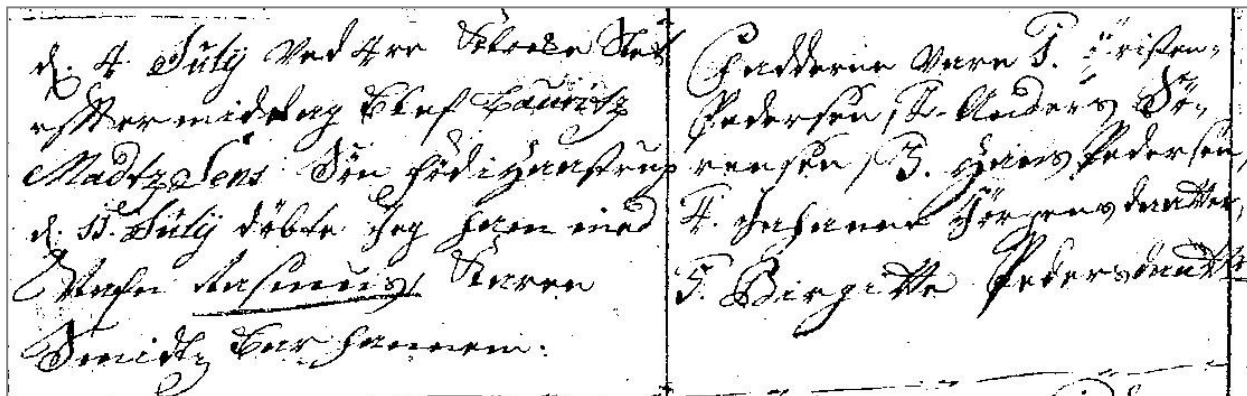 d. 4 July Ved 4re Slet
efftermiddag blef Lauritz
Madtz Søn fød i Haastrup
d. 11. July døbte Jeg ham med
Nafn Rasmus, Karen
Smidtz bar hannem.
Fadderne vare 1. Cristen
Pedersen, 2. Anders Sø-
rensen, 3. Hans Pedersen,
4. Johanne Jørgensdaatter,
5. Birgitte Pedersdaatter